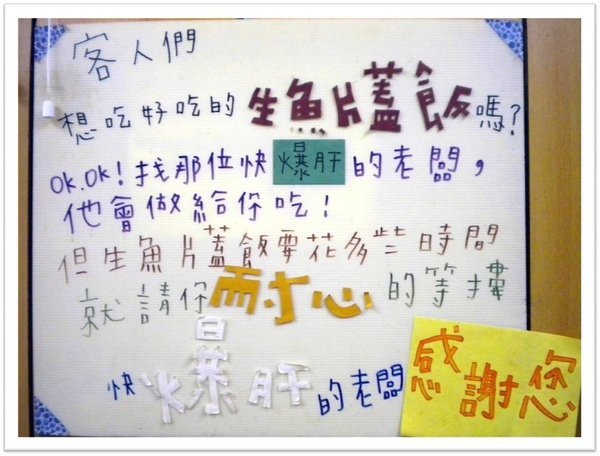 客人們
想吃好吃的生魚片蓋飯嗎?
OK.OK!找那位快爆肝的老闆,
他會做給你吃!
但生魚片蓋飯要花多些時間
就請你耐心的等摟
快爆肝的老闆
感謝您